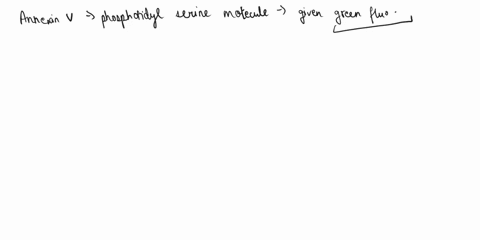 Annexin V → phosphotidyl serine molecule → given green fluo.